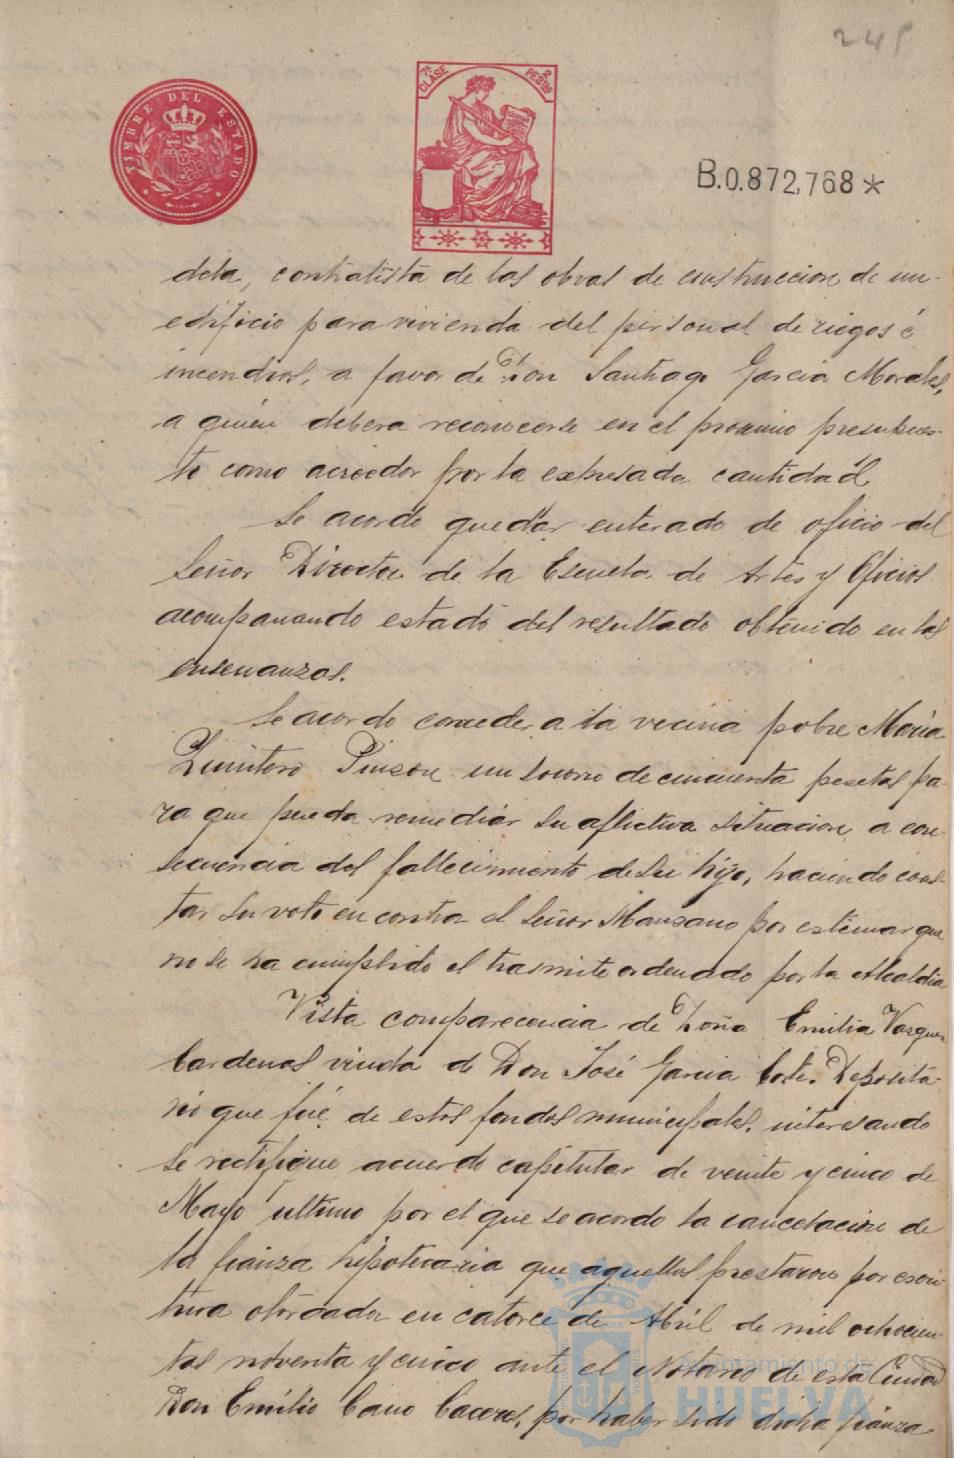 248
TIMBRE DEL ESTADO
7ª CLASE 2 PESTAS
B.0.872,768*
dela, contratista de las obras de construccion de un
edificio para vivienda del personal de riegos é
incendios, a favor de Don Santiago Garcia Morales,
a quien debera reconocerse en el proximo presupues-
to como acreedor por la expresada cantidad.
Se acordó quedar enterado de oficio del
Señor Director de la Escuela de Artes y Oficios
acompanando estado del resultado obtenido en las
ensenanzas.
Se acordo conceder a la vecina pobre Maria
Quintero Pinzon un socorro de cincuenta pesetas pa-
ra que pueda remediar su aflictiva situacion a con
secuencia del fallecimiento de su hijo, haciendo cons-
tar su voto en contra el Señor Manzano por estimar que
no se ha cumplido el tramite ordenado por la Alcaldia
Vista comparecencia de Doña Emilia Vazquez
Cardenas viuda de Don José Garcia Cortes Deposita-
rio que fué de estos fondos municipales, interesando
se rectifique acuerdo capitular de veinte y cinco de
Mayo ultimo por el que se acordo la cancelacion de
la fianza hipotecaria que aquellos prestaron por escri-
tura otorgada en catorce de Abril de mil ochocien-
tos noventa y cinco ante el Notario de esta Ciudad
Don Emilio Cano Caceres, por haber sido dicha fianza
Ayuntamiento de
HUELVA